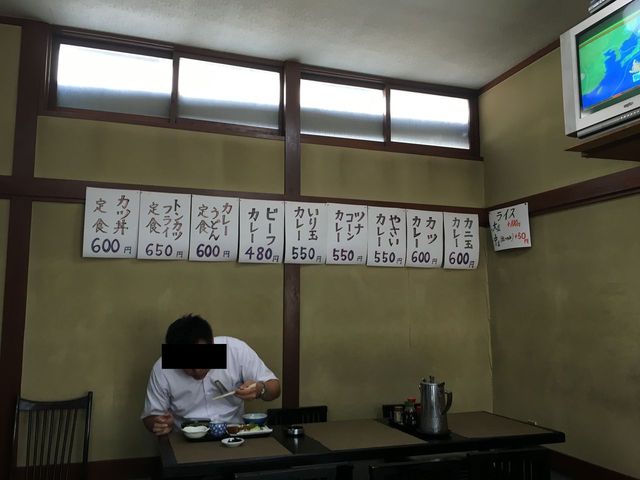 カツ丼
定食
600円
トンカツ
フライ
定食
650円
カレー
うどん
定食
600円
ビーフ
カレー
480円
いり玉
カレー
550円
ツナ
コーン
カレー
550円
やさい
カレー
550円
カツ
カレー
600円
カニ玉
カレー
600円
ライス
大 +100円
+50円